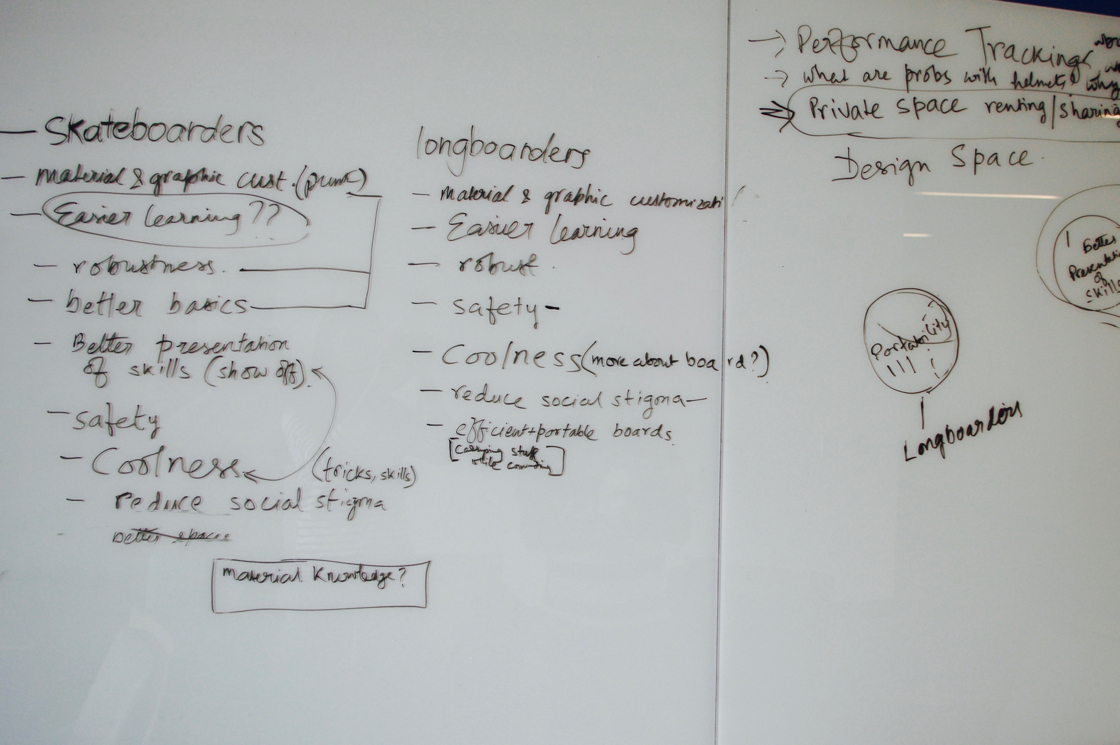 — Skateboarders
— material & graphic cust. (punk)
— Easier learning ??
— robustness.
— better basics
— Better presentation
of skills (show off)
— safety
— Coolness (tricks, skills)
— reduce social stigma
- better spaces
material knowledge?
longboarders
— material & graphic customizati
— Easier learning
— robust.
— safety —
— Coolness (more about board?)
— reduce social stigma —
— efficient+portable boards
[carrying stuff
while]
→ Performance Tracking
→ what are probs with helmets? why
⇒ Private space renting/sharing
Design Space.
Portability
Longboarders
Better
Presentati
of
skills